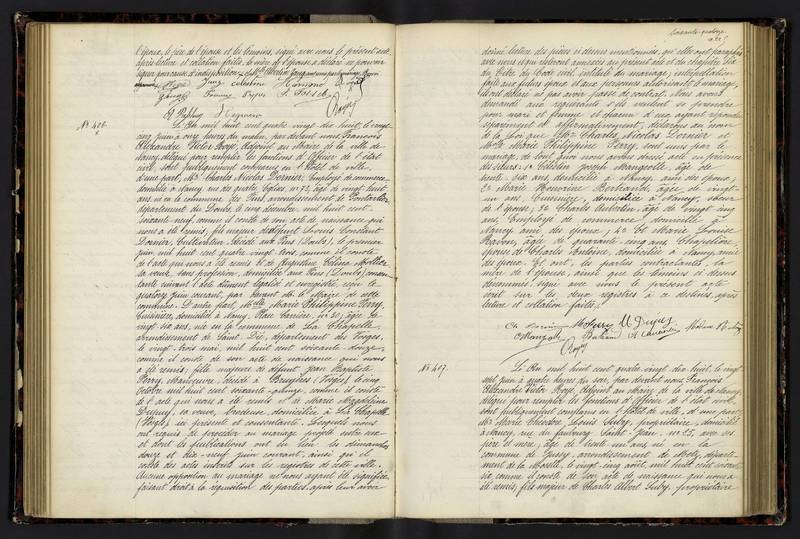 l'époux, le père de l'épouse et les témoins, signé avec nous le présent acte
après lecture et collation faites, la mère de l'épouse a déclaré ne pouvoir
signer pour cause d'indisposition
Royé
N° 406.
L'An mil huit cent quatre vingt dix huit, le vingt
cinq juin à onze heures du matin, par devant nous, François
Alexandre Victor Royé, Adjoint au Maire de la ville de
Nancy, délégué pour remplir les fonctions d'Officier de l'état
civil, sont publiquement comparus en l'hôtel de ville,
d'une part, Mr Charles Nicolas Dornier, Employé de commerce,
domicilié à Nancy, rue des quatre Eglises, n° 73, âgé de vingt huit
ans, né en la commune des Fins, arrondissement de Pontarlier
département du Doubs, le cinq décembre, mil huit cent
soixante neuf, comme il conste de son acte de naissance qui
nous a été remis, fils majeur de défunt Louis Constant
Dornier, Cultivateur, décédé aux Fins (Doubs), le premier
juin mil huit cent quatre vingt trois, comme il conste
de l'acte qui nous a été remis et de Augustine
sa veuve, sans profession, domiciliée aux Fins (Doubs) consen
tante suivant l'acte dûment légalisé et enregistré, reçu le
quatorze juin courant, par devant Mr le Maire de cette
commune. D'autre part, Melle Marie Philippine Perry,
Cuisinière, domiciliée à Nancy, Place Carrière, n° 30, âgée de
vingt six ans, née en la commune de La Chapelle,
arrondissement de Saint Dié, département des Vosges,
le vingt trois mai, mil huit cent soixante douze,
comme il conste de son acte de naissance qui nous
a été remis, fille majeure de défunt Jean Baptiste
Perry, Manœuvre, décédé à Bruyères (Vosges), le cinq
Octobre mil huit cent soixante quinze, comme il conste
de l'acte qui nous a été remis et de Marie Magdeleine
Dupuy, sa veuve, Brodeuse, domiciliée à La Chapelle
(Vosges) ici présente et consentante. Lesquels nous
ont requis de procéder au mariage projeté entre eux
et dont les publications ont eu lieu les dimanches
douze et dix-neuf juin courant, ainsi qu'il
conste des actes inscrits sur les registres de cette ville.
Aucune opposition au mariage ne nous ayant été signifiée,
faisant droit à la réquisition des parties, après leur avoir
donné lecture des pièces ci dessus mentionnées, qu'elles ont paraphées
avec nous, qui resteront annexées au présent acte et du chapitre Six
du Titre du Code civil, intitulé du mariage; interpellation
faite aux futurs époux et aux personnes autorisant le mariage,
ils ont déclaré ne pas avoir passé de contrat. Nous avons
demandé aux requérants s'ils veulent se prendre
pour mari et femme et chacun d'eux ayant répondu
séparément et affirmativement, déclarons au nom
de la Loi que Mr Charles Nicolas Dornier et
Melle Marie Philippine Perry, sont unis par le
mariage, de tout quoi nous avons dressé acte en présence
des Sieurs: 1° Célestin Joseph Mangeolle, âgé de
trente six ans, domicilié à Nancy, ami des époux;
2° Marie Honorine Bertrand, âgée de vingt-
un ans, Cuisinière, domiciliée à Nancy, sœur
de l'épouse; 3° Charles Aubertin, âgé de vingt cinq
ans, Employé de commerce, domicilié à
Nancy, ami des époux; 4° et Marie Louise
âgée de quarante cinq ans, Chapelière,
épouse de Charles Antoine, domiciliée à Nancy, amie
des époux. Et ont, les parties contractantes, la
mère de l'épouse, ainsi que les témoins ci dessus
dénommés, signé avec nous le présent acte
écrit sur les deux registres à ce destinés, après
lecture et collation faites.
Royé
N° 407.
L'An mil huit cent quatre vingt dix huit, le vingt
sept juin à quatre heures du soir, par devant nous François
Alexandre Victor Royé, Adjoint au Maire de la ville de Nancy,
délégué pour remplir les fonctions d'Officier de l'état civil,
sont publiquement comparus en l'hôtel de ville, d'une part
Mr Marie Théodore Louis Suby, propriétaire, domicilié
à Nancy, rue du faubourg Saint Jean, n° 25, avec ses
père et mère, âgé de trente un ans, né en la
commune de Jussy, arrondissement de Metz, départe-
ment de la Moselle, le vingt cinq août, mil huit cent soixante
six, comme il conste de son acte de naissance qui nous a
été remis, fils majeur de Charles Albert Suby, propriétaire